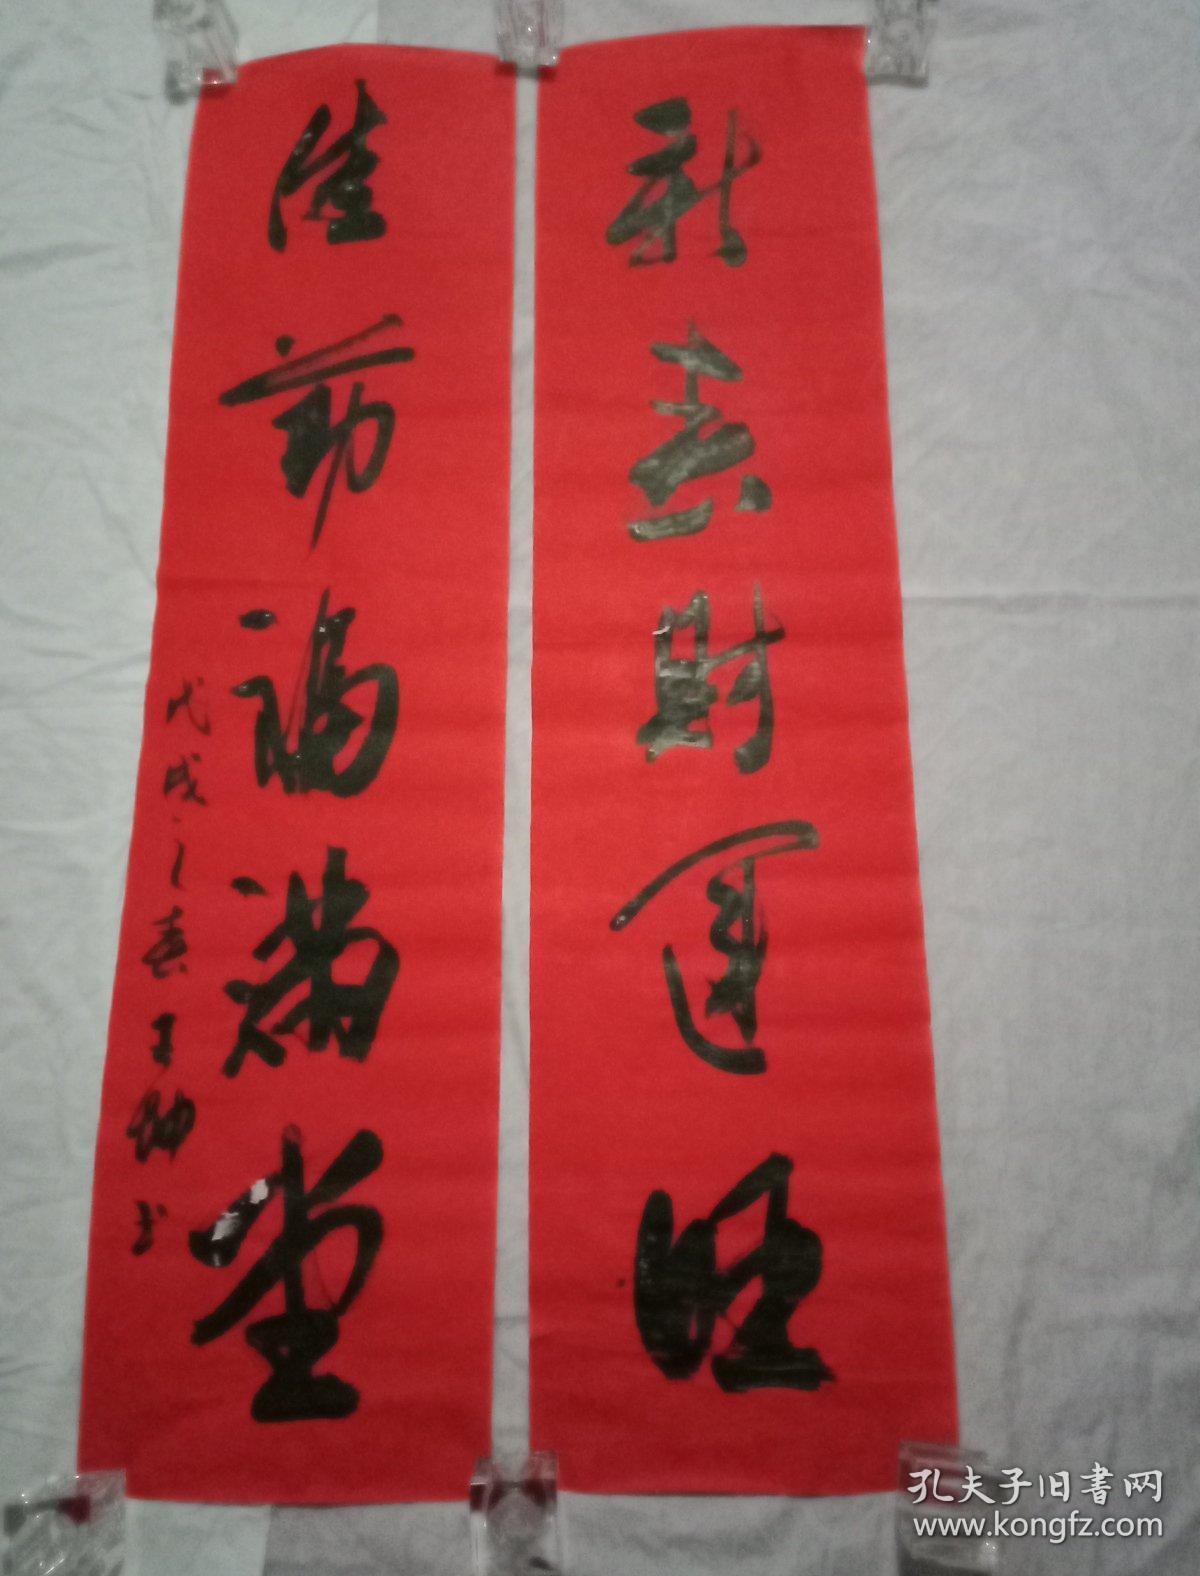 新春财運旺
佳節福满堂
戊戌之春王坤书
孔夫子旧書网
www.kongfz.com